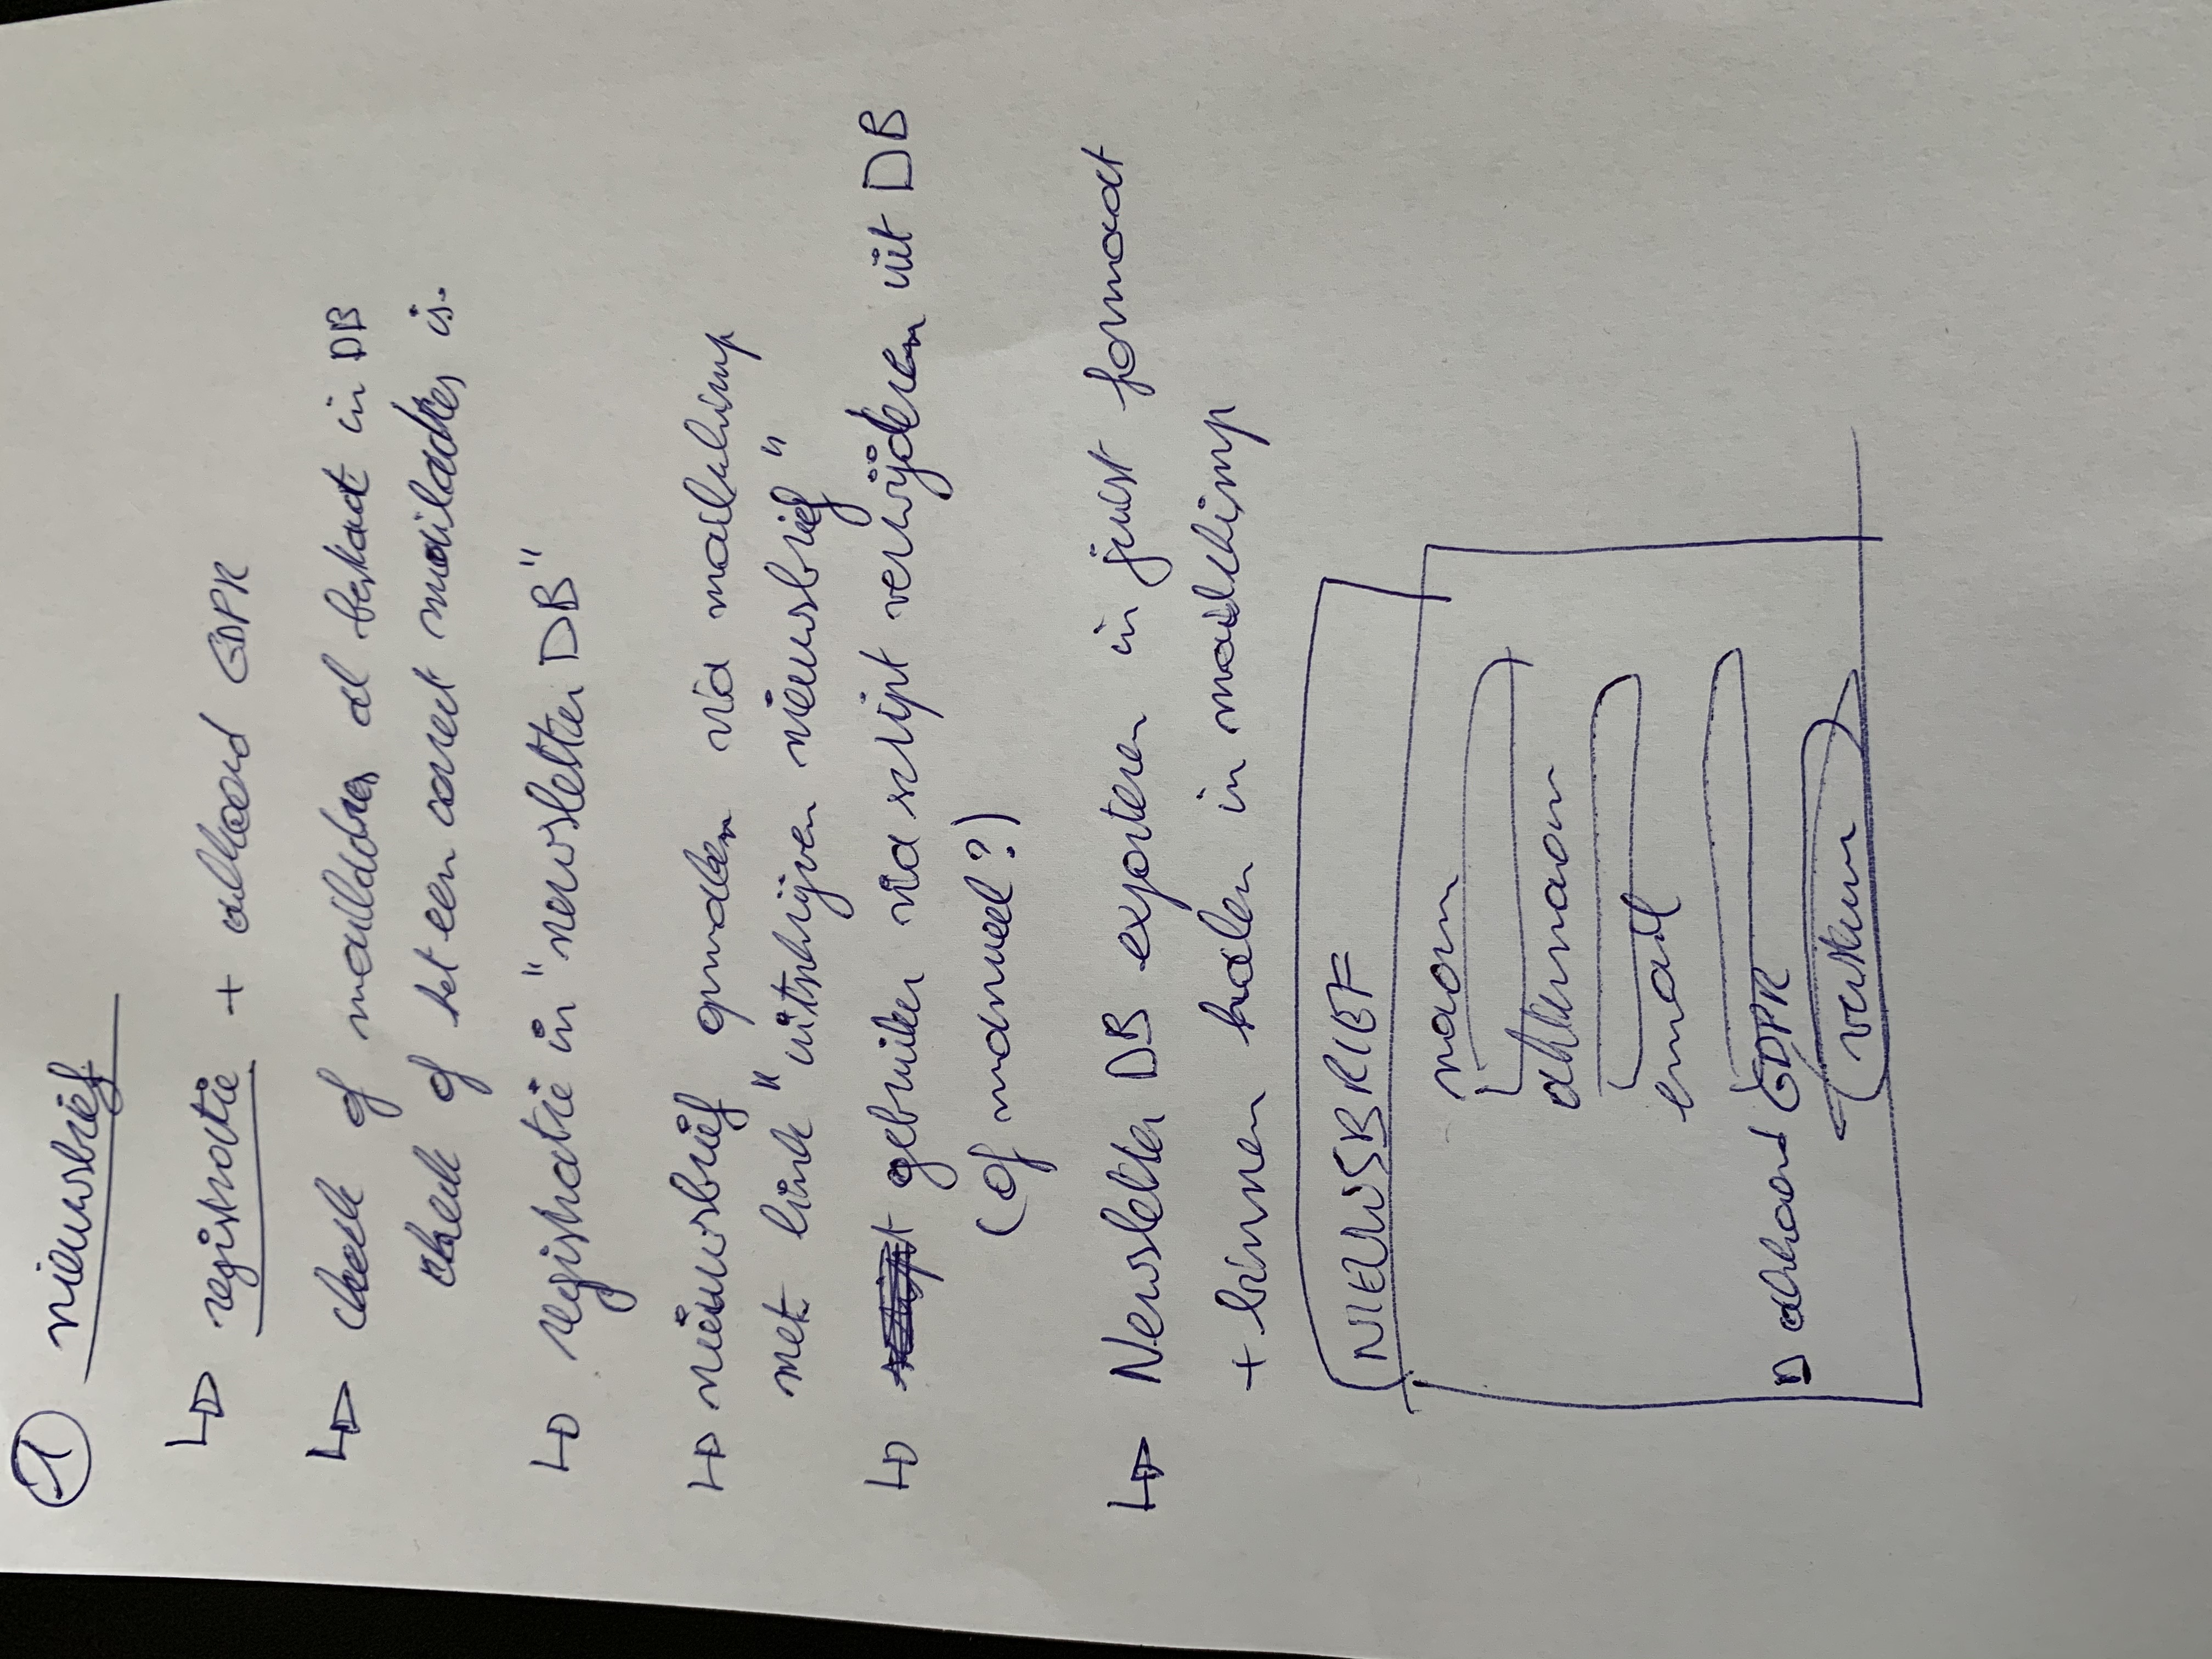 1 nieuwsbrief
registratie + akkoord GDPR
check of mailadres al bestaat in DB
check of het een correct mailadres is.
registratie in "newsletter DB"
nieuwsbrief opmaken via mailchimp
met link "uitschrijven nieuwsbrief"
script gebruiker via script verwijderen uit DB
(of manueel?)
Newsletter DB exporteren in juist formaat
+ binnen halen in mailchimp
NIEUWSBRIEF
naam
achternaam
email
akkoord GDPR
versturen